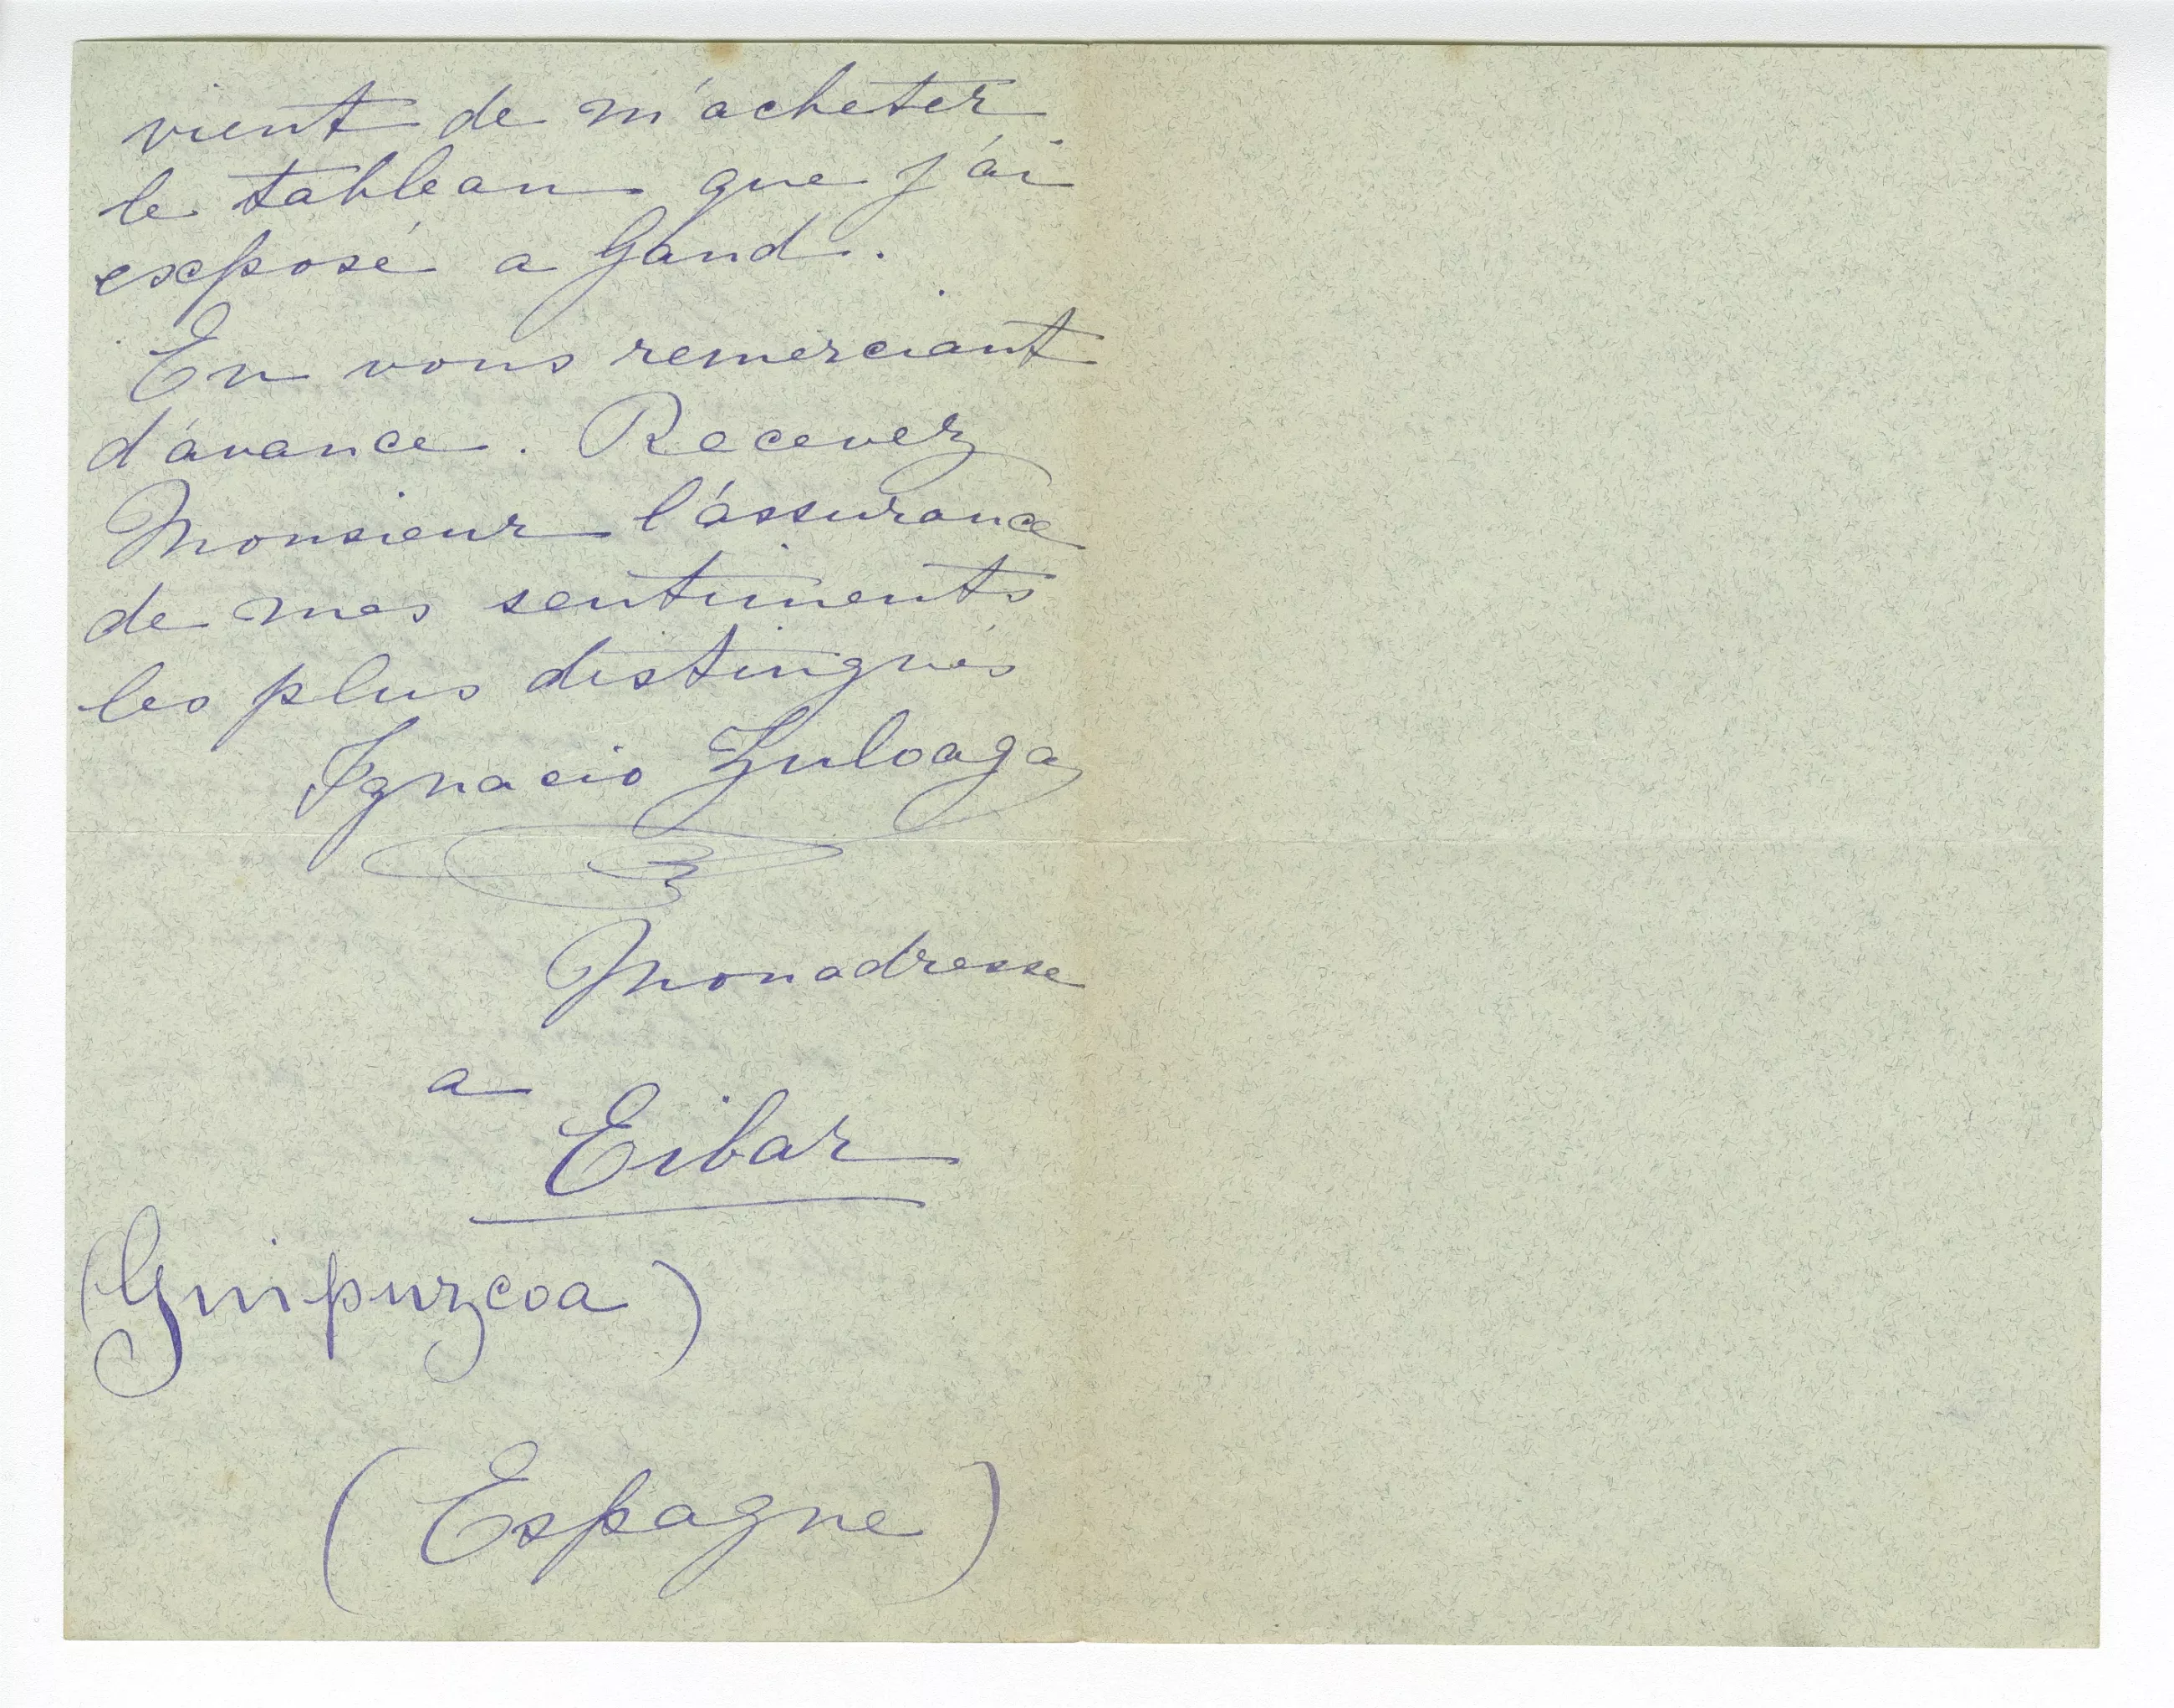 vient de m'acheter
le tableau que j'ai
exposé a Gand.
En vous remerciant
d'avance. Recevez
Monsieur l'assurance
de mes sentiments
les plus distingués
Ignacio Zuloaga
Mon adresse
a
Eibar
(Guipuzcoa)
(Espagne)